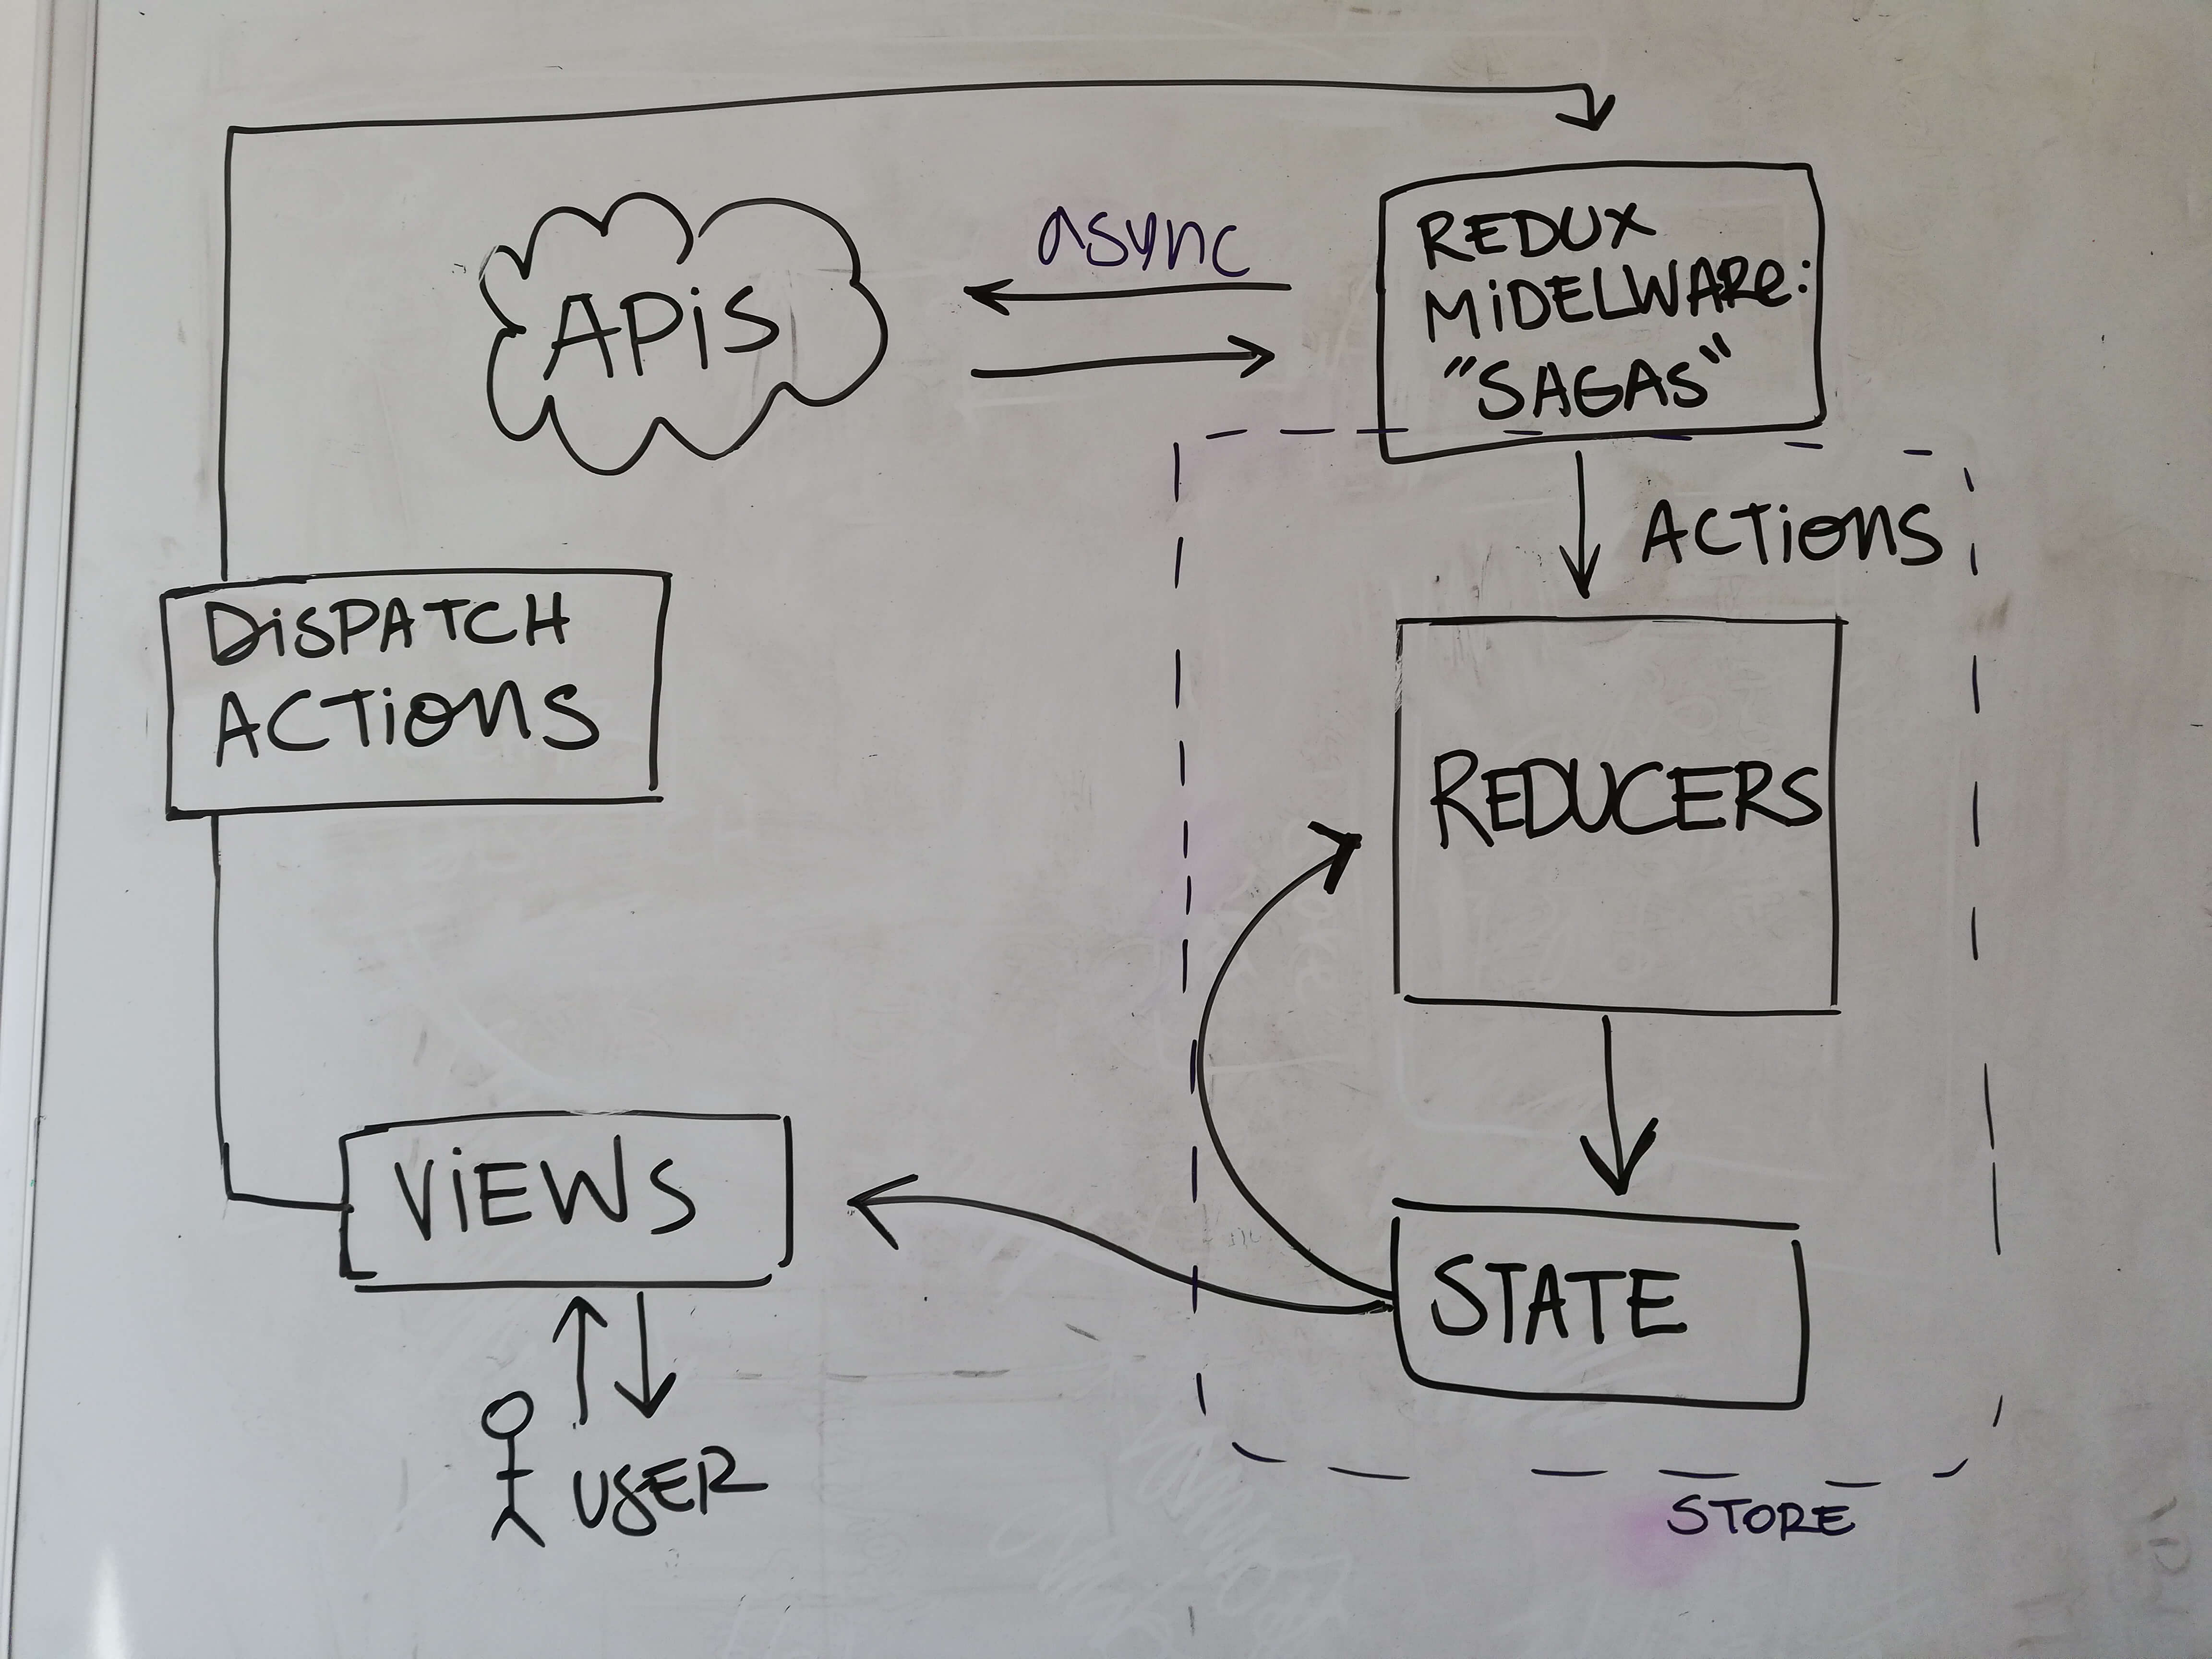 async
APiS
REDUX
MiDELWARe:
"SAGAS"
ACTiOnS
DiSPATCH
ACTiOnS
REDUCERS
ViEWS
STATE
USER
STORE